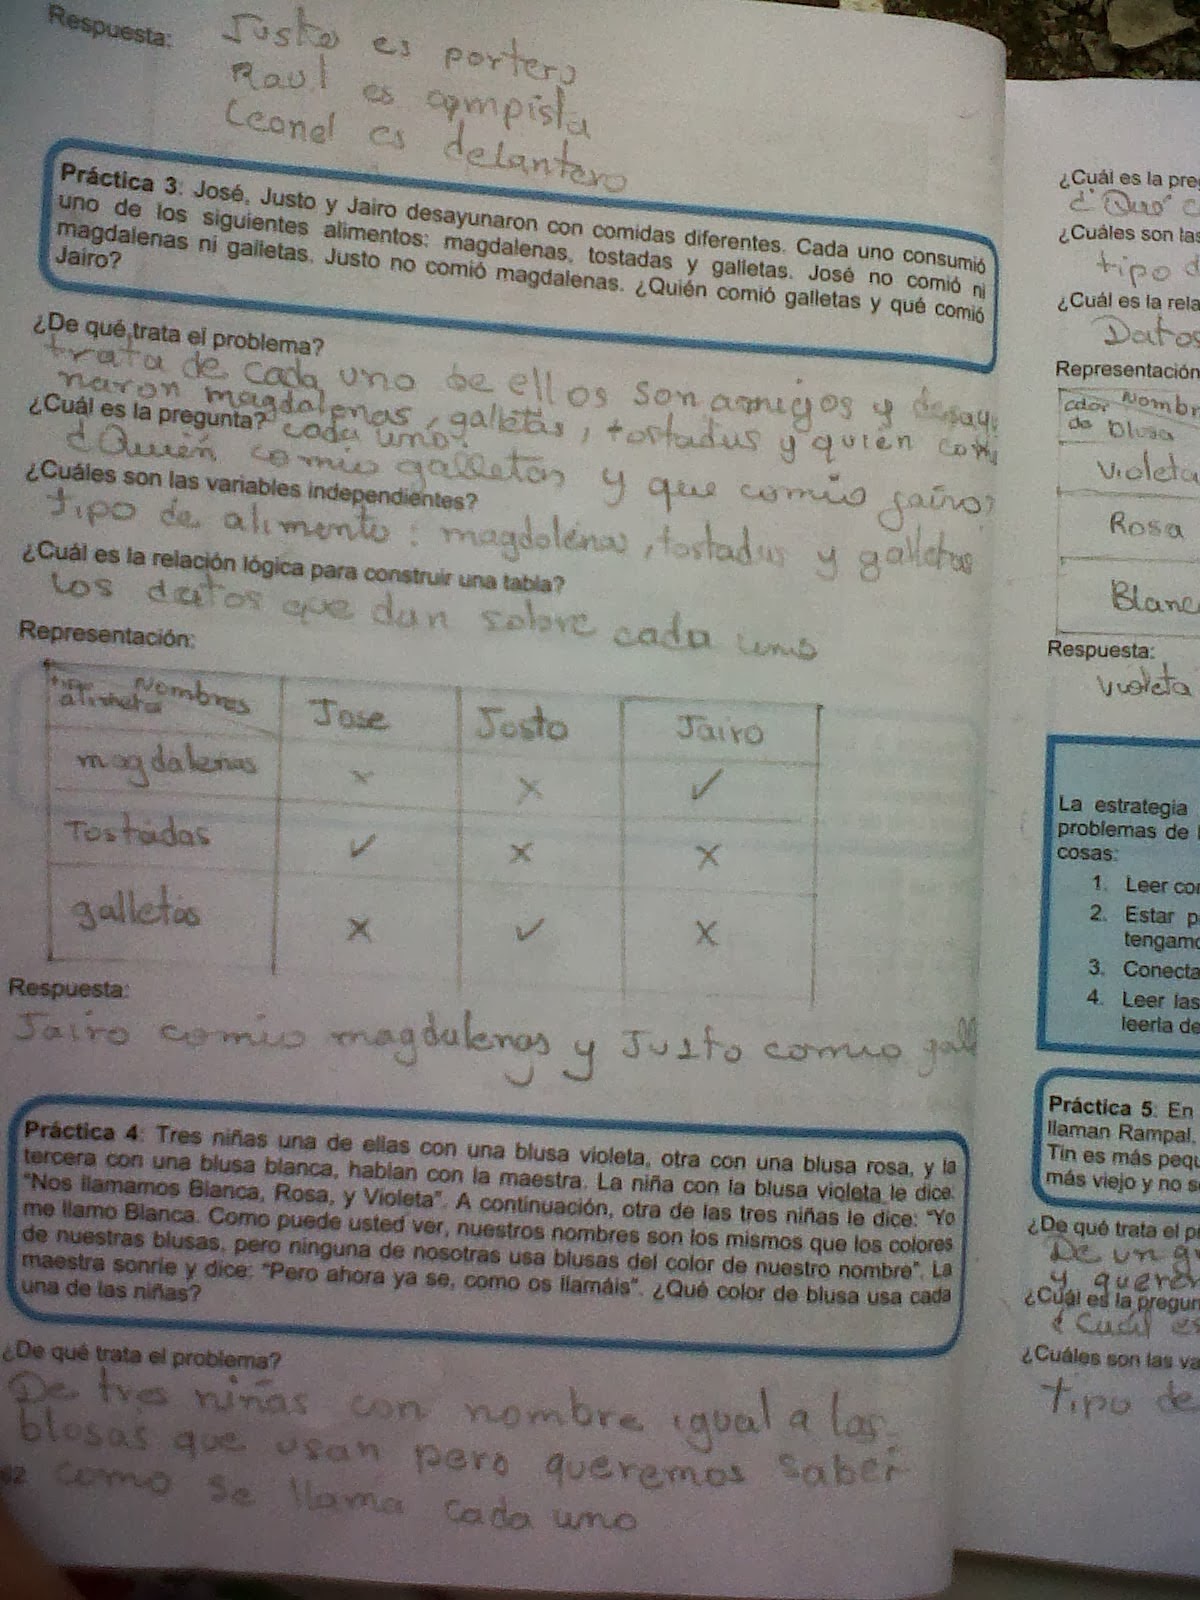 Respuesta: Justo es portero
Raul es campista
Leonel es delantero
Práctica 3: José, Justo y Jairo desayunaron con comidas diferentes. Cada uno consumió
uno de los siguientes alimentos: magdalenas, tostadas y galletas. José no comió ni
magdalenas ni galletas. Justo no comió magdalenas. ¿Quién comió galletas y qué comió
Jairo?
¿De qué trata el problema?
trata de cada uno de ellos son amigos y desay
naron magdalenas, galletas, tostadas y quién com
¿Cuál es la pregunta? cada uno?
¿Quién comio galletas y que comio jairo?
¿Cuáles son las variables independientes?
tipo de alimento: magdalenas, tostadas y galletas
¿Cuál es la relación lógica para construir una tabla?
Los datos que dan sobre cada uno
Representación:
Nombres
Jose Josto Jairo
magdalenas x x ✓
Tostadas ✓ x x
galletas x ✓ x
Respuesta:
Jairo comio magdalenas y Justo comio gall
Práctica 4: Tres niñas una de ellas con una blusa violeta, otra con una blusa rosa, y la
tercera con una blusa blanca, hablan con la maestra. La niña con la blusa violeta le dice:
"Nos llamamos Blanca, Rosa, y Violeta". A continuación, otra de las tres niñas le dice: "Yo
me llamo Blanca. Como puede usted ver, nuestros nombres son los mismos que los colores
de nuestras blusas, pero ninguna de nosotras usa blusas del color de nuestro nombre". La
maestra sonríe y dice: "Pero ahora ya se, como os llamáis". ¿Qué color de blusa usa cada
una de las niñas?
¿De qué trata el problema?
De tres niñas con nombre igual a las
blosas que usan pero queremos saber
como se llama cada uno
62
¿Cuál es la pre
¿Qué c
¿Cuáles son las
tipo d
¿Cuál es la rela
Datos
Representación
Nombr
de blusa
Violeta
Rosa
Blanc
Respuesta:
Violeta
La estrategia
problemas de
cosas:
1. Leer con
2. Estar p
tengamo
3. Conecta
4. Leer las
leerla de
Práctica 5: En
llaman Rampal,
Tin es más pequ
más viejo y no s
¿De qué trata el p
De un g
y querer
¿Cuál es la pregun
¿Cuál es
¿Cuáles son las va
tipo de